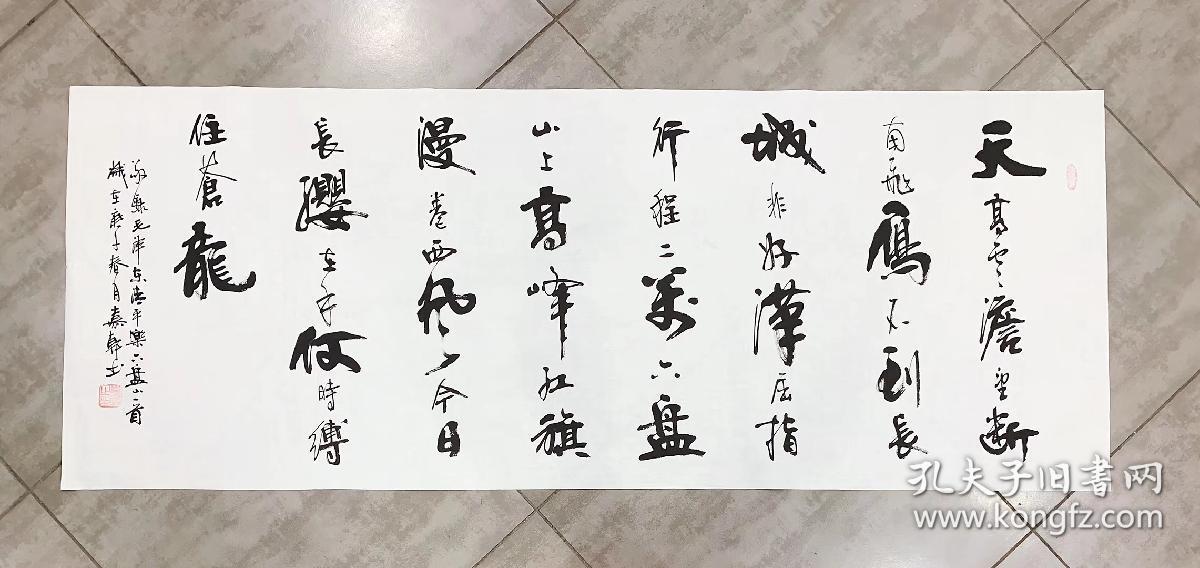 天高雲澹望断
南飛雁不到長
城非好漢屈指
行程二萬六盤
山上高峰红旗
漫卷西風今日
長纓在手何時縛
住蒼龍
敬录毛泽东清平樂六盘山一首
歲在庚子春月嘉軒书
孔夫子旧書网
www.kongfz.com